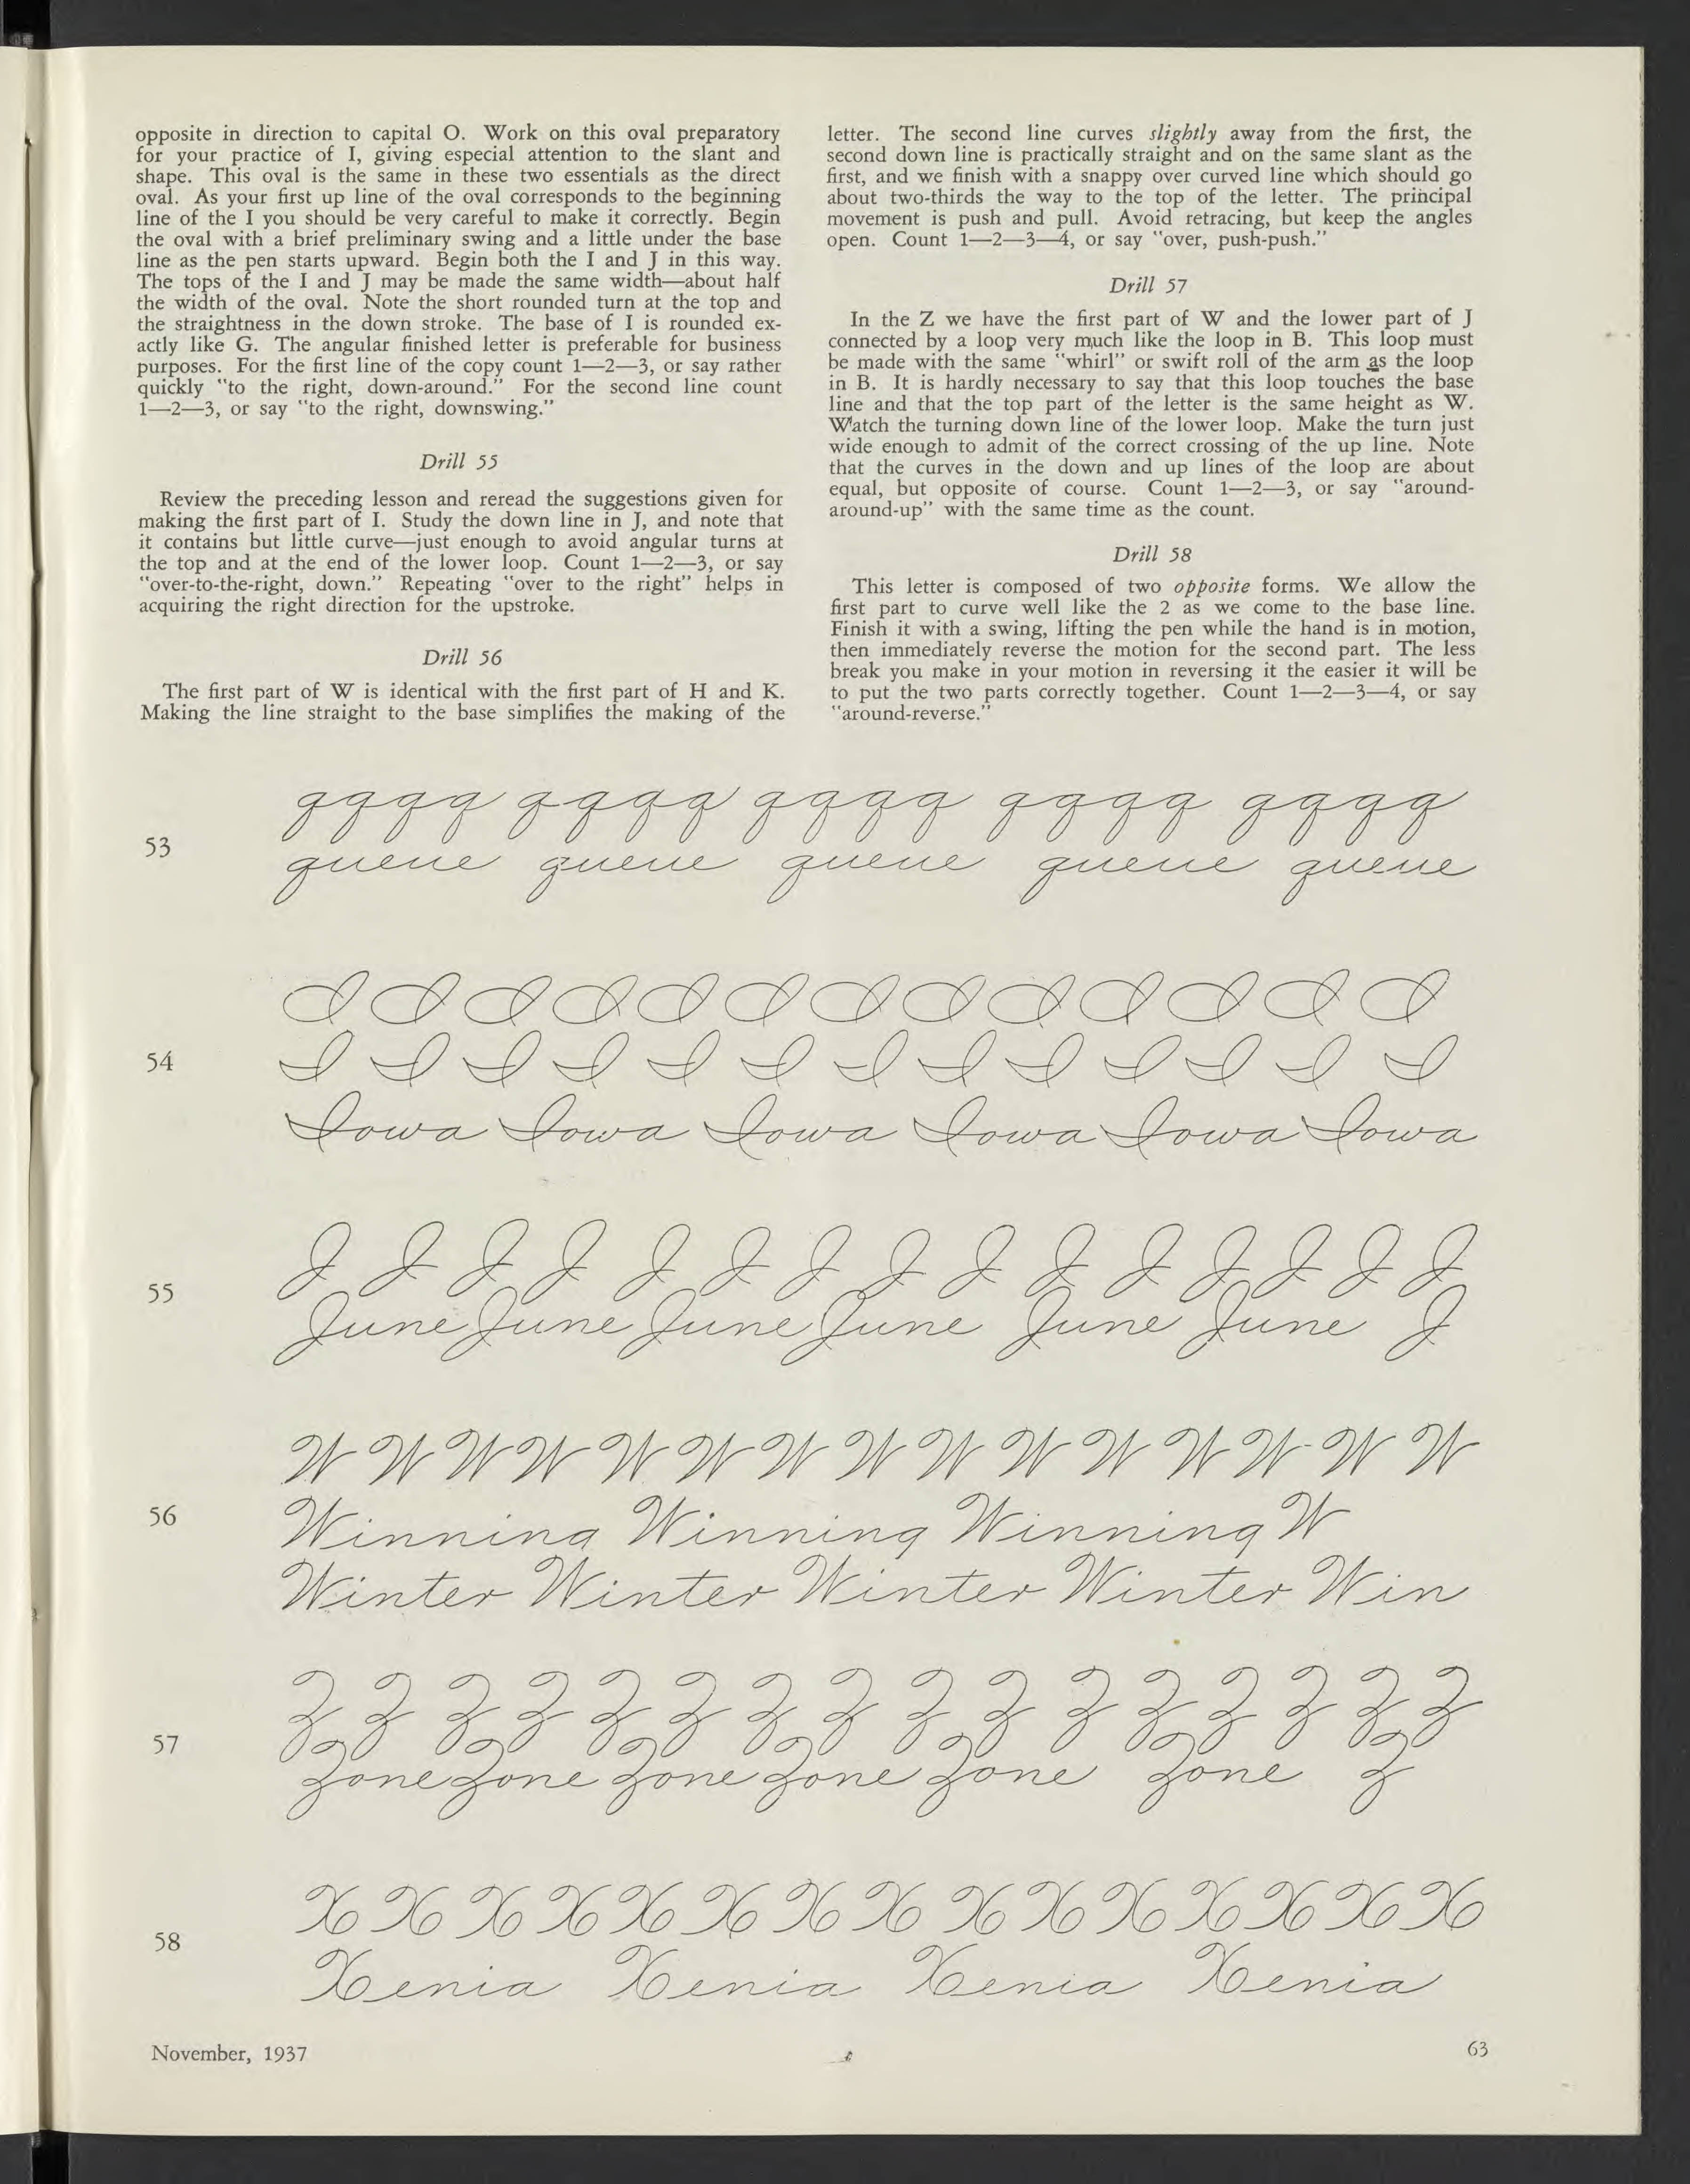 opposite in direction to capital O. Work on this oval preparatory
for your practice of I, giving especial attention to the slant and
shape. This oval is the same in these two essentials as the direct
oval. As your first up line of the oval corresponds to the beginning
line of the I you should be very careful to make it correctly. Begin
the oval with a brief preliminary swing and a little under the base
line as the pen starts upward. Begin both the I and J in this way.
The tops of the I and J may be made the same width—about half
the width of the oval. Note the short rounded turn at the top and
the straightness in the down stroke. The base of I is rounded ex-
actly like G. The angular finished letter is preferable for business
purposes. For the first line of the copy count 1—2—3, or say rather
quickly "to the right, down-around." For the second line count
1—2—3, or say "to the right, downswing."
Drill 55
Review the preceding lesson and reread the suggestions given for
making the first part of I. Study the down line in J, and note that
it contains but little curve—just enough to avoid angular turns at
the top and at the end of the lower loop. Count 1—2—3, or say
"over-to-the-right, down." Repeating "over to the right" helps in
acquiring the right direction for the upstroke.
Drill 56
The first part of W is identical with the first part of H and K.
Making the line straight to the base simplifies the making of the
letter. The second line curves slightly away from the first, the
second down line is practically straight and on the same slant as the
first, and we finish with a snappy over curved line which should go
about two-thirds the way to the top of the letter. The principal
movement is push and pull. Avoid retracing, but keep the angles
open. Count 1—2—3—4, or say "over, push-push."
Drill 57
In the Z we have the first part of W and the lower part of J
connected by a loop very much like the loop in B. This loop must
be made with the same "whirl" or swift roll of the arm as the loop
in B. It is hardly necessary to say that this loop touches the base
line and that the top part of the letter is the same height as W.
Watch the turning down line of the lower loop. Make the turn just
wide enough to admit of the correct crossing of the up line. Note
that the curves in the down and up lines of the loop are about
equal, but opposite of course. Count 1—2—3, or say "around-
around-up" with the same time as the count.
Drill 58
This letter is composed of two opposite forms. We allow the
first part to curve well like the 2 as we come to the base line.
Finish it with a swing, lifting the pen while the hand is in motion,
then immediately reverse the motion for the second part. The less
break you make in your motion in reversing it the easier it will be
to put the two parts correctly together. Count 1—2—3—4, or say
"around-reverse."
53
qqqq qqqq qqqq qqqq qqqq
queue queue queue queue queue
54
I I I I I I I I I I I I I
Iowa Iowa Iowa Iowa Iowa Iowa
55
J J J J J J J J J J J J J J J
June June June June June June J
56
W W W W W W W W W W W W W W W
Winning Winning Winning W
Winter Winter Winter Winter Win
57
Z Z Z Z Z Z Z Z Z Z Z Z Z Z Z Z
Zone Zone Zone Zone Zone Zone Z
58
X X X X X X X X X X X X X X X
Xenia Xenia Xenia Xenia
November, 1937
63